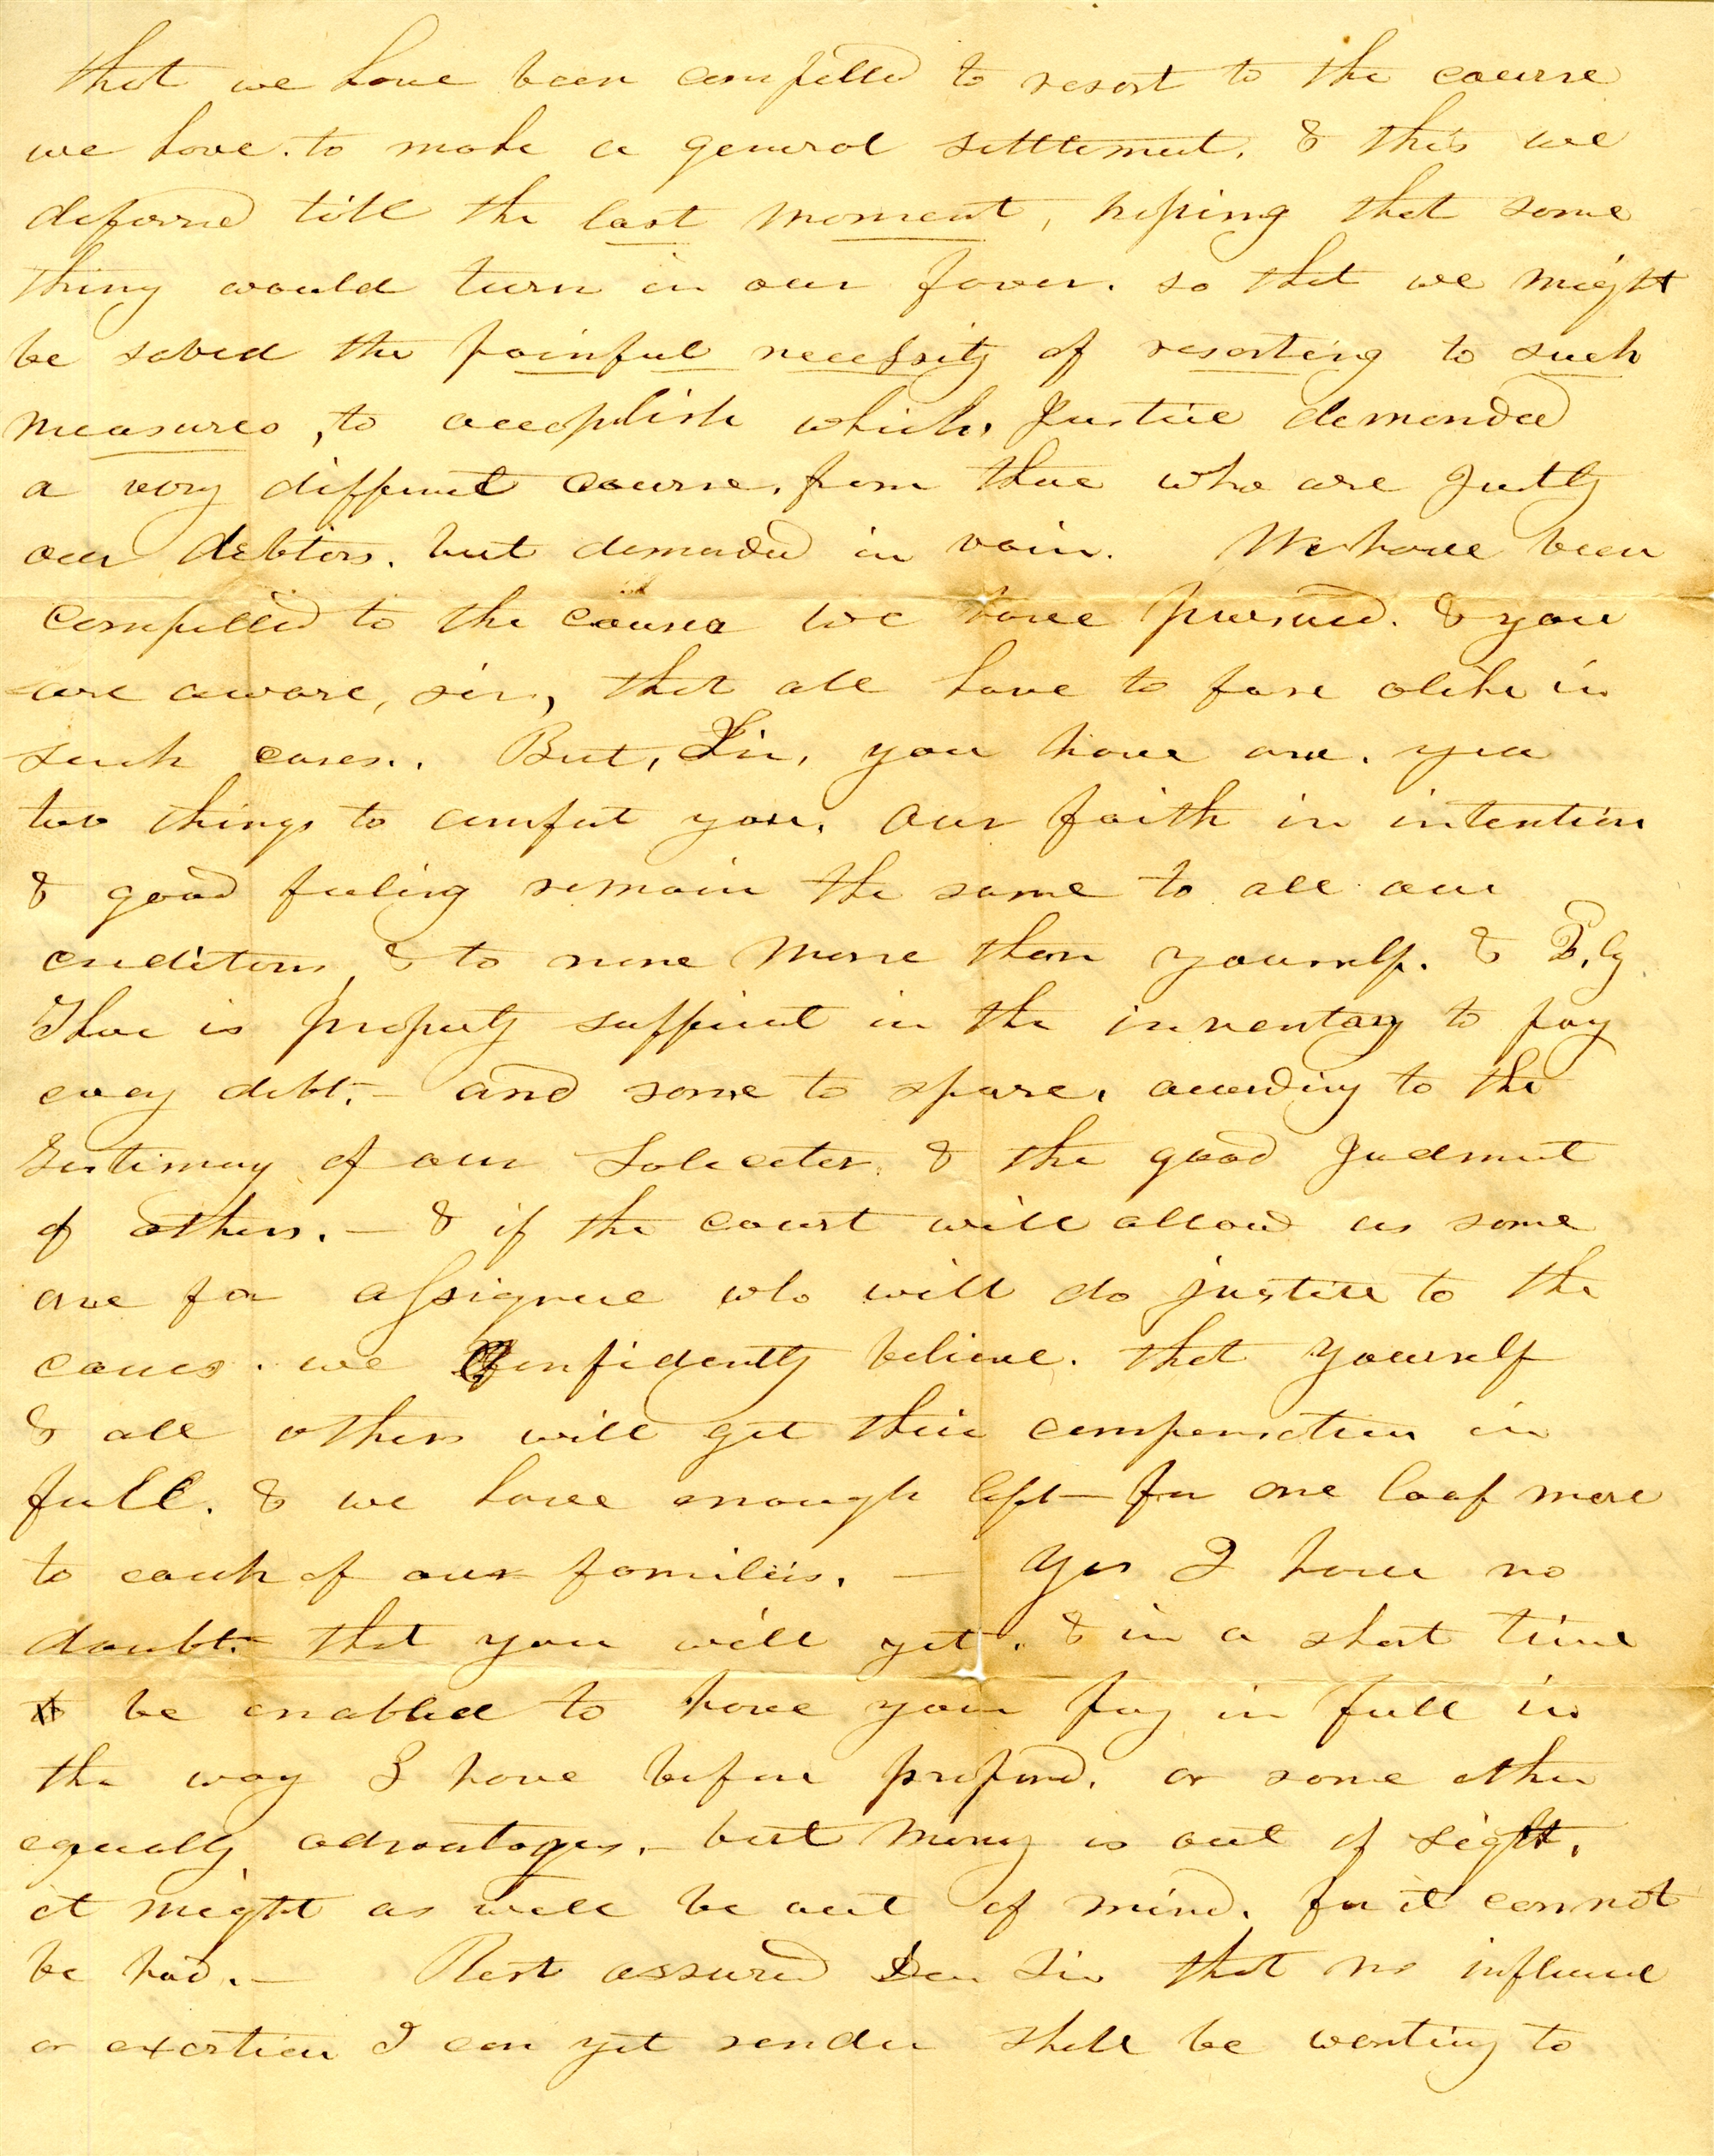 that we have been compelled to resort to the course
we have. to make a general settlement. & this we
deferred till the last moment, hoping that some
thing would turn in our favor. so that we might
be saved the painful necessity of resorting to such
measures, to accoplish which, Justice demanded
a very different course, from those who are Justly
our debtors. but demanded in vain. We have been
compelled to the course we have pursued. & you
are aware, sir, that all have to fare alike in
such cases. But, Sir, you have one. yea
two things to comfort you, our faith in intention
& good feeling remain the same to all our
creditors, & to none more than yourself. & 2,ly
There is property sufficient in the inventory to pay
every debt.— and some to spare, according to the
testimony of our Soliceter. & the good Judment
of others.— & if the court will allow us some
one for assignee who will do justice to the
cause. we confidently believe. that yourself
& all others will get their compensation in
full. & we have enough left— for one loaf more
to each of our families. — Yes I have no
doubt. that you will yet. & in a short time
be enabled to have your pay in full in
the way I have before proposed. or some other
equally advantages.— but money is out of sight,
it might as well be out of mind. for it cannot
be had.— Rest assured Dear Sir that no influence
or exertion I can yet render shall be wanting to